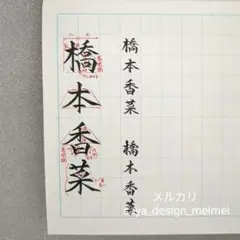 橋本香菜
橋本香菜
橋本香菜
メルカリ